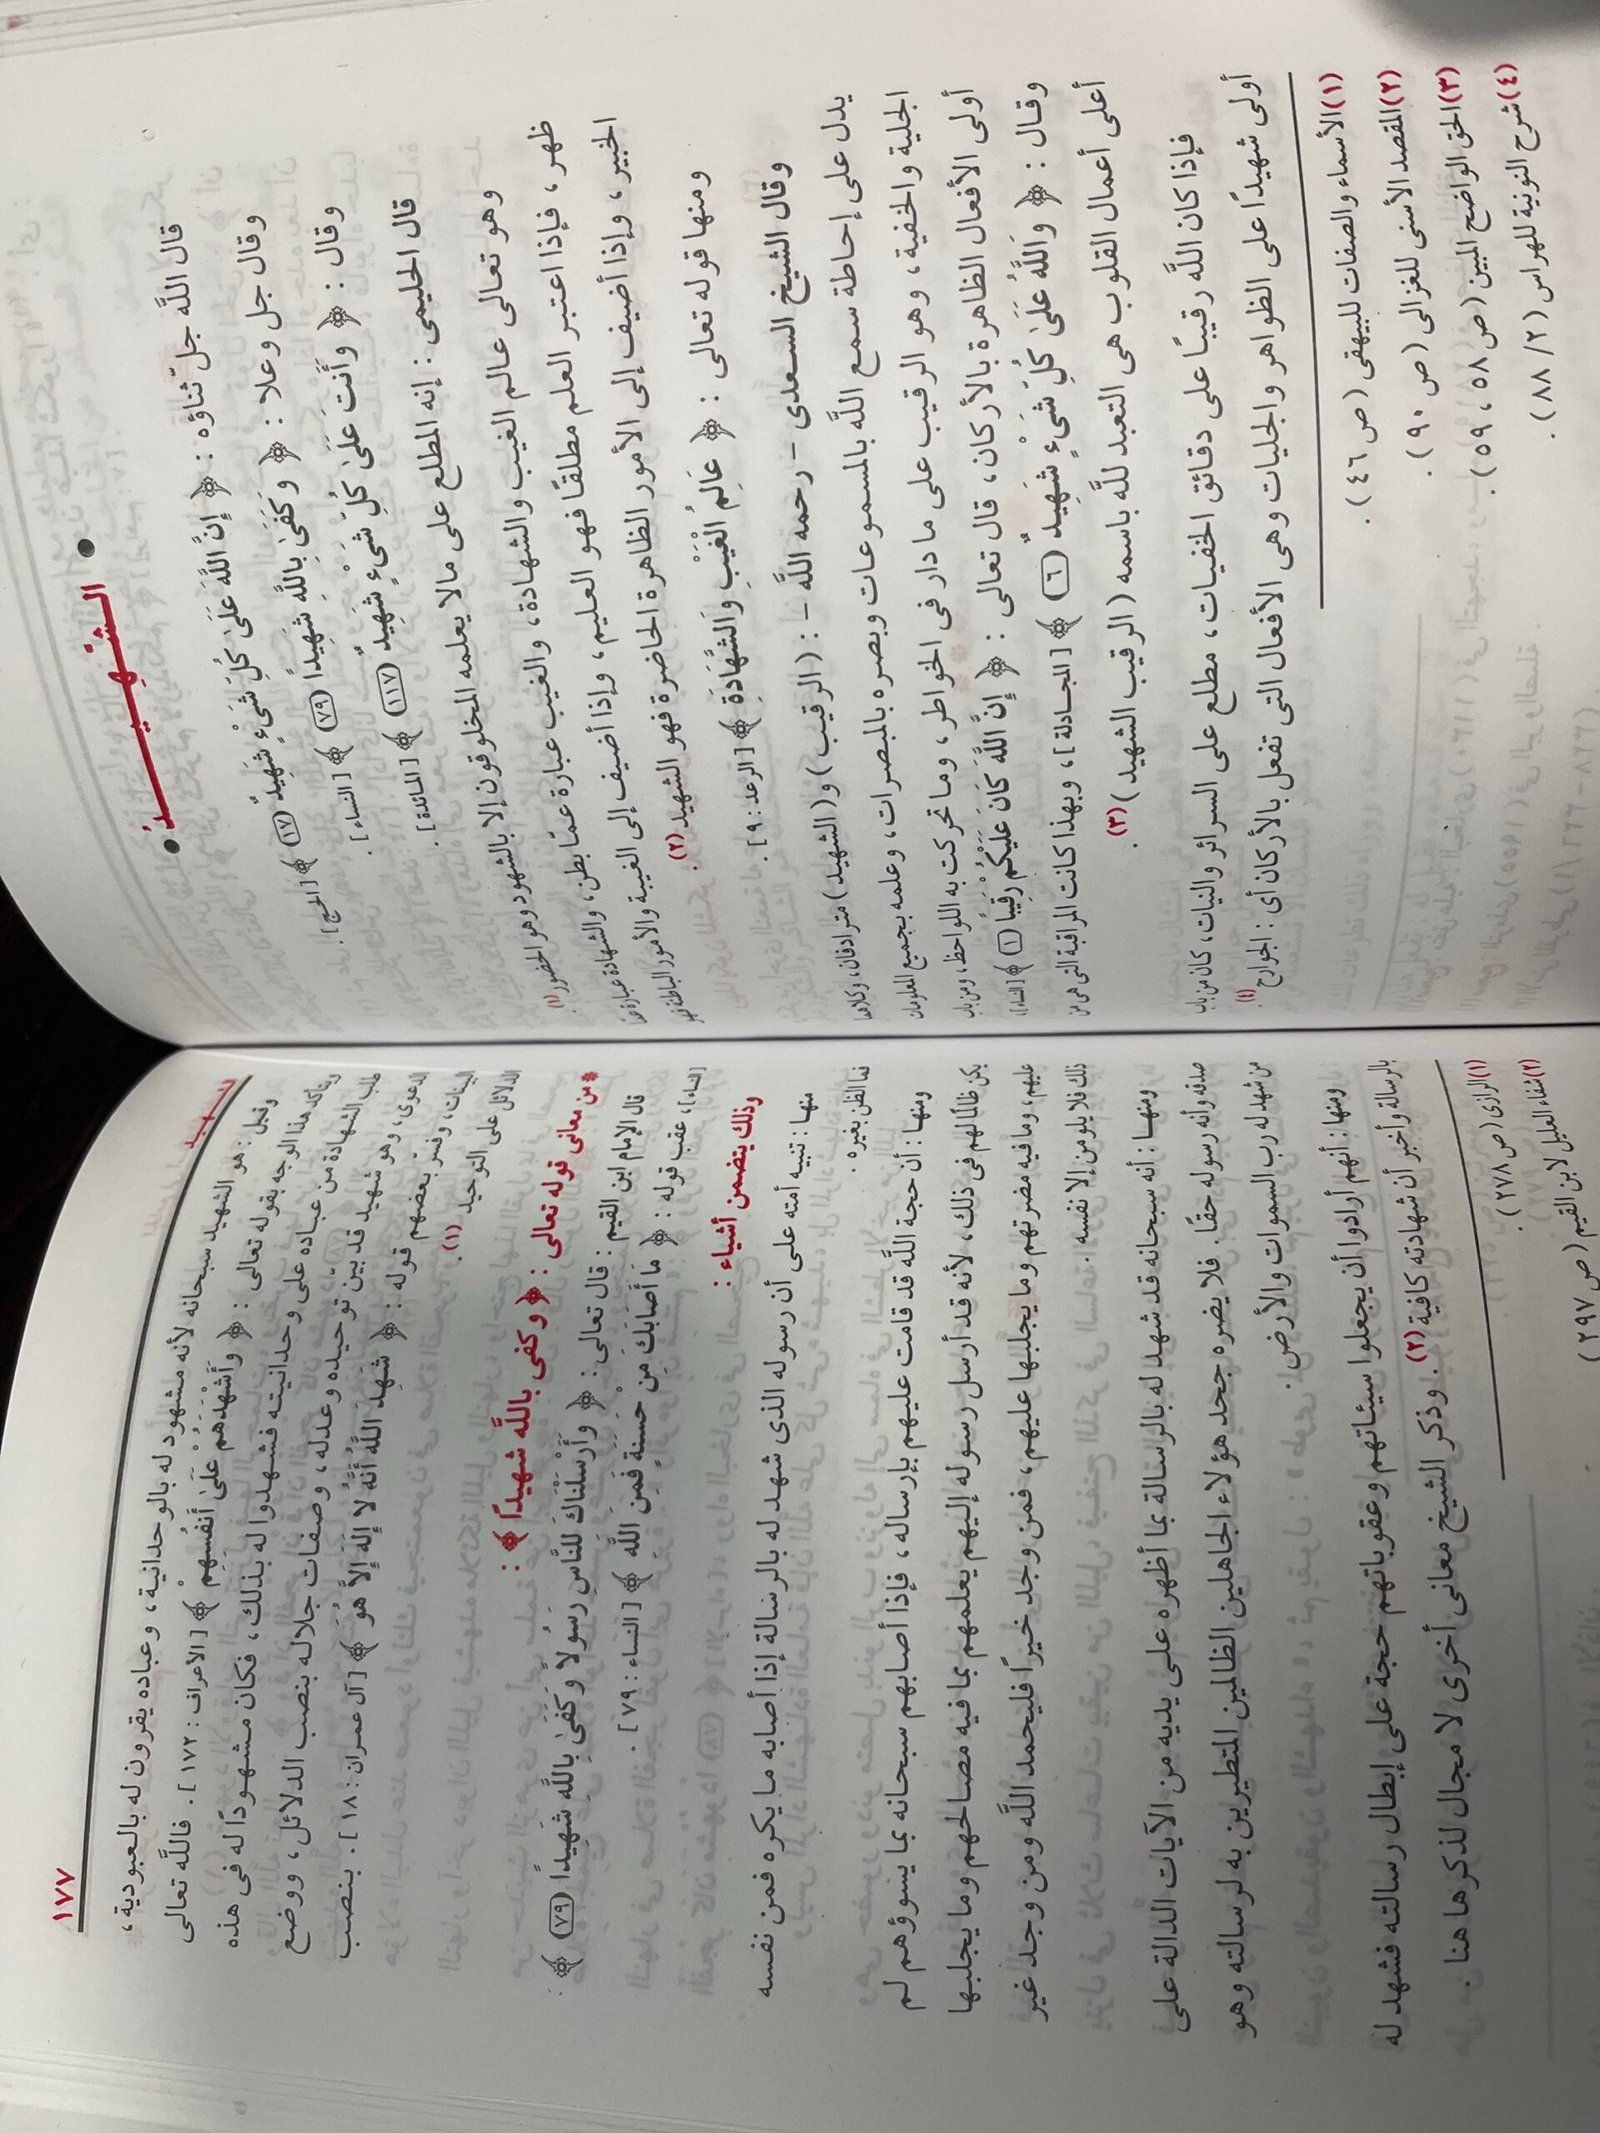 الشهيد
قال اللَّه جلّ ثناؤه : ﴿ إِنَّ اللَّهَ عَلَىٰ كُلِّ شَيْءٍ شَهِيدٌ (١٧) ﴾ [الحج] .
وقال جل وعلا : ﴿ وَكَفَىٰ بِاللَّهِ شَهِيدًا (٧٩) ﴾ [النساء] .
وقال : ﴿ وَأَنتَ عَلَىٰ كُلِّ شَيْءٍ شَهِيدٌ (١١٧) ﴾ [المائدة] .
قال الحليمى : إنه المطلع على مالا يعلمه المخلوقون إلا بالشهود وهو الحضور (١)
وهو تعالى عالم الغيب والشهادة، والغيب عبارة عمّا بطن، والشهادة عبارة عمّا
ظهر ، فإذا اعتبر العلم مطلقًا فهو العليم ، وإذا أضيف إلى الغيبة والأمور الباطنة فهو
الخبير ، وإذا أضيف إلى الأمور الظاهرة الحاضرة فهو الشهيد (٢) .
ومنها قوله تعالى : ﴿ عَالِمُ الْغَيْبِ وَالشَّهَادَةِ ﴾ [الرعد : ٩] .
وقال الشيخ السعدى - رحمه اللَّه - : (الرقيب) و(الشهيد) مترادفان، وكلاهما
يدل على إحاطة سمع اللَّه بالمسموعات وبصره بالمبصرات، وعلمه بجميع المعلومات
الجلية والخفية، وهو الرقيب على ما دار فى الخواطر، وما تحركت به اللواحظ، ومن باب
أولى الأفعال الظاهرة بالأركان، قال تعالى : ﴿ إِنَّ اللَّهَ كَانَ عَلَيْكُمْ رَقِيبًا (١) ﴾ [النساء]،
وقال : ﴿ وَاللَّهُ عَلَىٰ كُلِّ شَيْءٍ شَهِيدٌ (٦) ﴾ [المجادلة]، وبهذا كانت المراقبة التى هى من
أعلى أعمال القلوب هى التعبد للَّه باسمه (الرقيب الشهيد) (٣) .
فإذا كان اللَّه رقيبًا على دقائق الخفيات، مطلع على السرائر والنيات، كان من باب
أولى شهيدًا على الظواهر والجليات وهى الأفعال التى تفعل بالأركان أى : الجوارح (٤) .
(١) الأسماء والصفات للبيهقى (ص ٤٦) .
(٢) المقصد الأسنى للغزالى (ص ٩٠) .
(٣) الحق الواضح المبين (ص ٥٨، ٥٩) .
(٤) شرح النونية للهراس (٢ / ٨٨) .
الشهيد
١٧٧
وقيل : هو الشهيد سبحانه لأنه مشهود له بالوحدانية، وعباده يقرون له بالعبودية،
ويتأكد هذا الوجه بقوله تعالى : ﴿ وَأَشْهَدَهُمْ عَلَىٰ أَنفُسِهِمْ ﴾ [الأعراف : ١٧٢]. فاللَّه تعالى
طلب الشهادة من عباده على وحدانيته فشهدوا له بذلك، فكان مشهودًا له فى هذه
الدعوى، وهو شهيد قد بين توحيده وعدله، وصفات جلاله بنصب الدلائل، ووضع
البينات، وفسّر بعضهم قوله : ﴿ شَهِدَ اللَّهُ أَنَّهُ لا إِلَهَ إِلاَّ هُوَ ﴾ [آل عمران : ١٨]. بنصب
الدلائل على التوحيد (١).
* من معانى قوله تعالى : ﴿ وكفى باللَّه شهيدًا ﴾ :
قال الإمام ابن القيم : قال تعالى : ﴿ وَأَرْسَلْنَاكَ لِلنَّاسِ رَسُولاً وَكَفَىٰ بِاللَّهِ شَهِيدًا (٧٩) ﴾ :
[النساء]، عقب قوله : ﴿ مَا أَصَابَكَ مِنْ حَسَنَةٍ فَمِنَ اللَّهِ ﴾ [النساء : ٧٩] .
وذلك يتضمن أشياء :
منها : تنبيه أمته على أن رسوله الذى شهد له بالرسالة إذا أصابه ما يكره فمن نفسه
فما الظن بغيره .
ومنها : أن حجة اللَّه قد قامت عليهم بإرساله، فإذا أصابهم سبحانه بما يسوؤهم لم
يكن ظالمًا لهم فى ذلك، لأنه قد أرسل رسوله إليهم يعلمهم بما فيه مصالحهم وما يجلبها
عليهم، وما فيه مضرتهم وما يجلبها عليهم، فمن وجد خيرًا فليحمد اللَّه ومن وجد غير
ذلك فلا يلومن إلا نفسه .
ومنها : أنه سبحانه قد شهد له بالرسالة بما أظهره على يديه من الآيات الدالة على
صدقه وأنه رسوله حقًا. فلا يضره جحد هؤلاء الجاهلين الظالمين المتطيرين به لرسالته وهو
من شهد له رب السموات والأرض.
ومنها : أنهم أرادوا أن يجعلوا سيئاتهم وعقوباتهم حجة على إبطال رسالته فشهد له
بالرسالة وأخبر أن شهادته كافية (٢). وذكر الشيخ معانى أخرى لا مجال لذكرها هنا .
(١) الرازى (ص ٢٧٨) .
(٢) شفاء العليل لابن القيم (ص ٢٩٧)